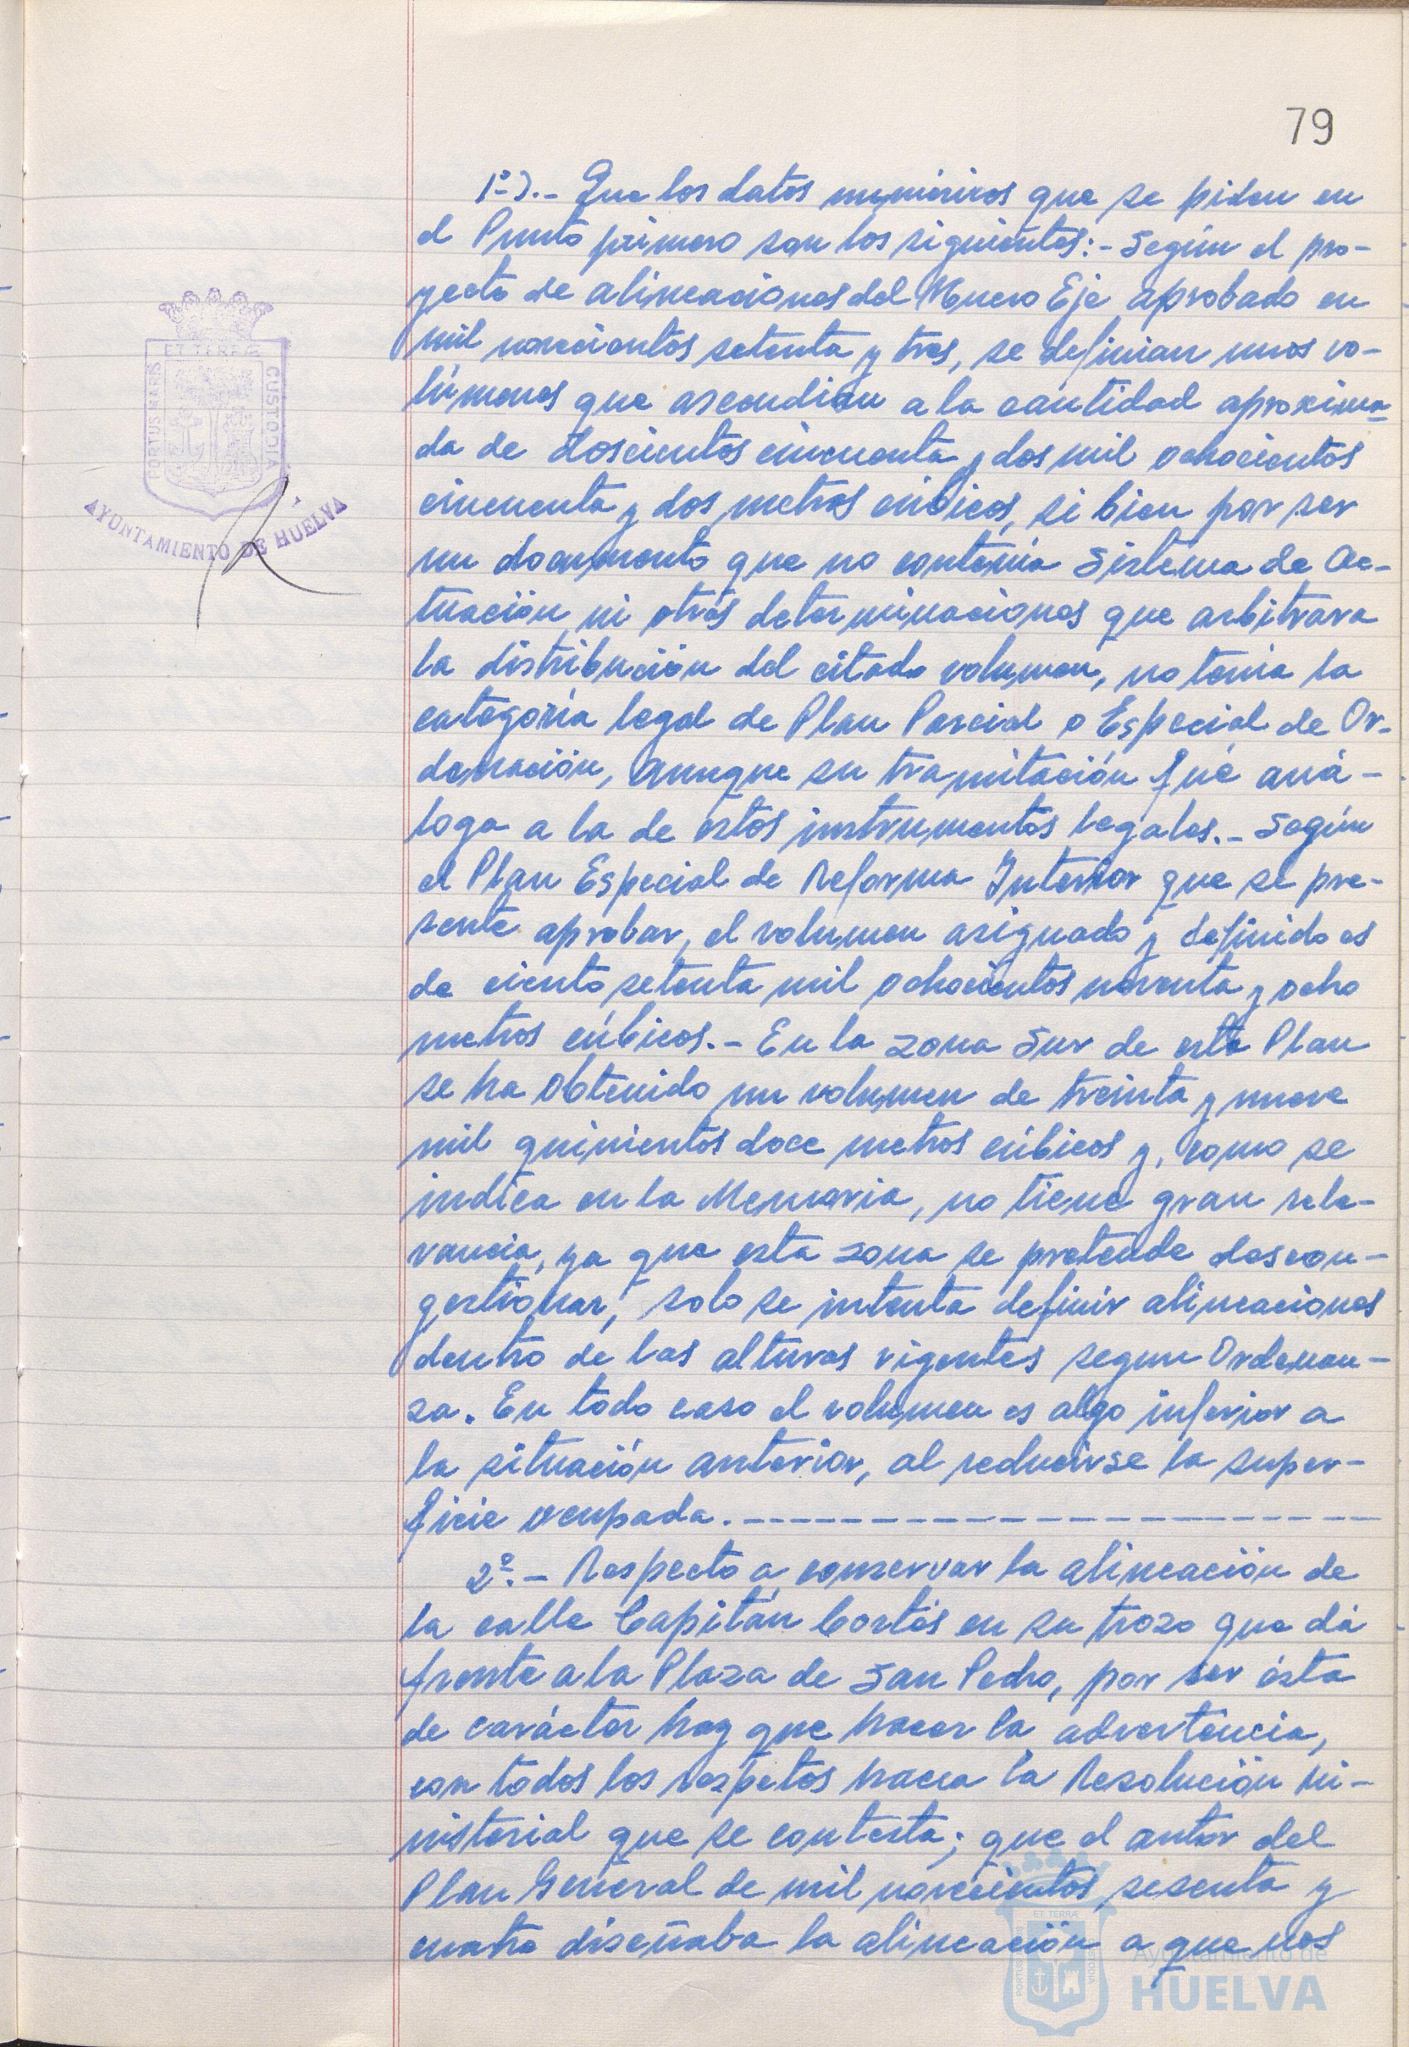 79
1º).- Que los datos numéricos que se piden en
el Punto primero son los siguientes:- Según el pro-
yecto de alineaciones del Nuevo Eje aprobado en
mil novecientos setenta y tres, se definian unos vo-
lúmenes que ascendian a la cantidad aproxima-
da de doscientos cincuenta y dos mil ochocientos
cincuenta y dos metros cúbicos, si bien por ser
un documento que no contenía Sistema de Ac-
tuación, ni otras determinaciones que arbitrara
la distribución del citado volumen, no tenía la
categoría legal de Plan Parcial o Especial de Or-
denación, aunque su tramitación fué aná-
loga a la de estos instrumentos legales.- Según
el Plan Especial de Reforma Interior que se pre-
sente aprobar, el volumen asignado y definido es
de ciento setenta mil ochocientos noventa y ocho
metros cúbicos.- En la zona Sur de este Plan
se ha obtenido un volumen de treinta y nueve
mil quinientos doce metros cúbicos y, como se
indica en la Memoria, no tiene gran rele-
vancia, ya que esta zona se pretende descon-
gestionar, solo se intenta definir alineaciones
dentro de las alturas vigentes segun Ordenan-
za. En todo caso el volumen es algo inferior a
la situación anterior, al reducirse la super-
ficie ocupada.
2º.- Respecto a conservar la alineación de
la calle Capitán Cortés en su trozo que dá
frente a la Plaza de San Pedro, por ser ésta
de carácter hay que hacer la advertencia,
con todos los respetos hacia la Resolución Mi-
nisterial que se contesta; que el autor del
Plan General de mil novecientos sesenta y
cuatro diseñaba la alineación a que nos
PORTUS MARIS
ET TERRÆ
CUSTODIA
AYUNTAMIENTO DE HUELVA
Ayuntamiento de
HUELVA